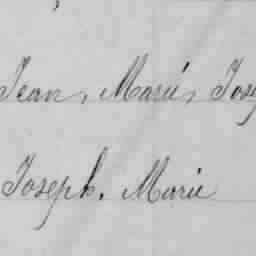 Jean, Marie, Jose
Joseph, Marie